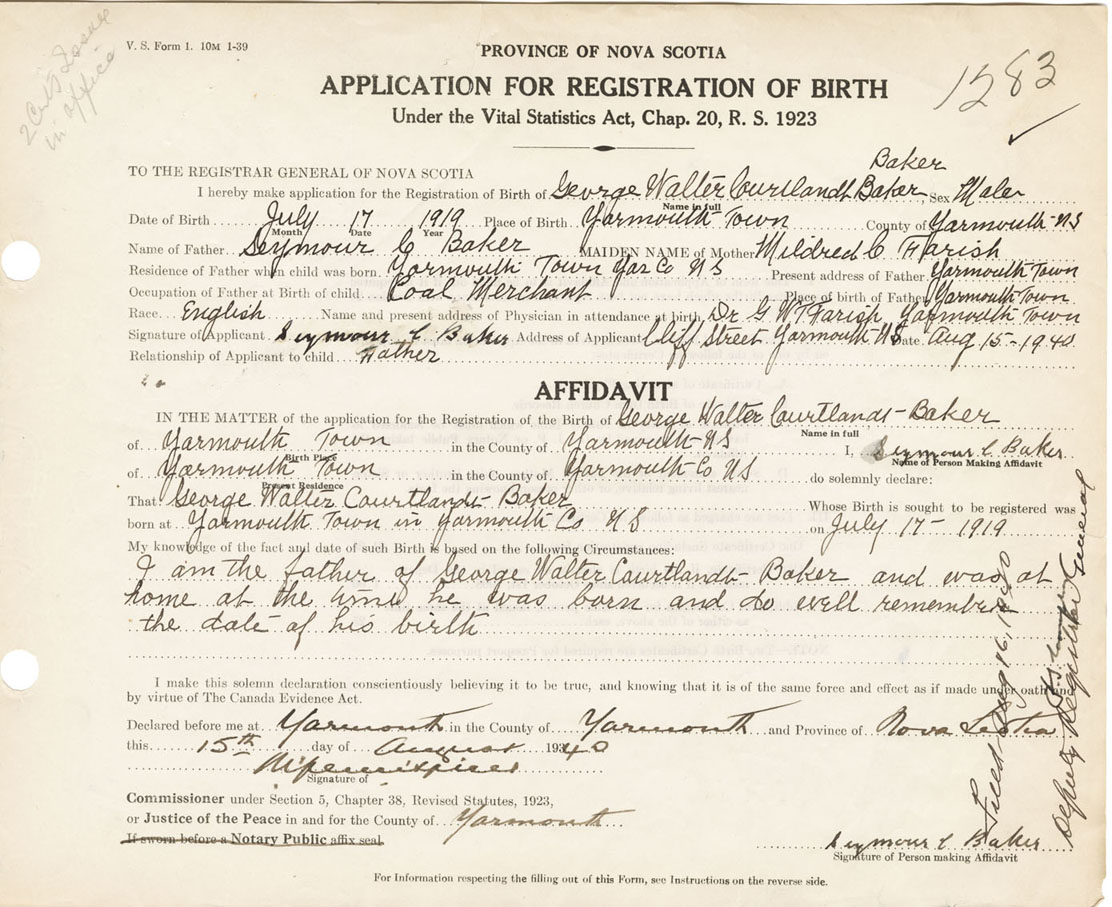 2 Certs Issue
in office
V. S. Form 1. 10M 1-39
PROVINCE OF NOVA SCOTIA
APPLICATION FOR REGISTRATION OF BIRTH
Under the Vital Statistics Act, Chap. 20, R. S. 1923
1283
TO THE REGISTRAR GENERAL OF NOVA SCOTIA
Baker
I hereby make application for the Registration of Birth of George Walter Courtlandt Baker, Sex Male
Name in full
Date of Birth July 17 1919 Place of Birth Yarmouth Town County of Yarmouth NS
Month Date Year
Name of Father Seymour C Baker MAIDEN NAME of Mother Mildred C Farish
Residence of Father when child was born. Yarmouth Town Yar Co NS Present address of Father Yarmouth Town
Occupation of Father at Birth of child Coal Merchant Place of birth of Father Yarmouth Town
Race. English Name and present address of Physician in attendance at birth Dr G W T Farish Yarmouth Town
Signature of Applicant Seymour C Baker Address of Applicant Cliff Street Yarmouth NS Date Aug 15-1940
Relationship of Applicant to child Father
AFFIDAVIT
IN THE MATTER of the application for the Registration of the Birth of George Walter Courtlandt-Baker
Name in full
of Yarmouth Town in the County of Yarmouth NS I, Seymour C Baker
Birth Place Name of Person Making Affidavit
of Yarmouth Town in the County of Yarmouth Co NS do solemnly declare:
Present Residence
That George Walter Courtlandt Baker Whose Birth is sought to be registered was
born at Yarmouth Town in Yarmouth Co NS on July 17- 1919
My knowledge of the fact and date of such Birth is based on the following Circumstances:
I am the father of George Walter Courtlandt Baker and was at
home at the time he was born and do well remember
the date of his birth
I make this solemn declaration conscientiously believing it to be true, and knowing that it is of the same force and effect as if made under oath and
by virtue of The Canada Evidence Act.
Declared before me at Yarmouth in the County of Yarmouth and Province of Nova Scotia
this 15th day of August 1940
Signature of
Commissioner under Section 5, Chapter 38, Revised Statutes, 1923,
or Justice of the Peace in and for the County of Yarmouth
If sworn before a Notary Public affix seal.
Seymour C Baker
Signature of Person making Affidavit
For Information respecting the filling out of this Form, see Instructions on the reverse side.
Filed Aug 16, 1940
Deputy Registrar General